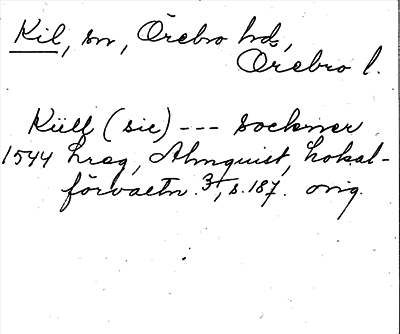 Kil, sn, Örebro hd,
Örebro l.
Küll (sic) --- sockner
1544 hreg, Almquist, Lokal-
förvaltn. 3, s. 187. orig.